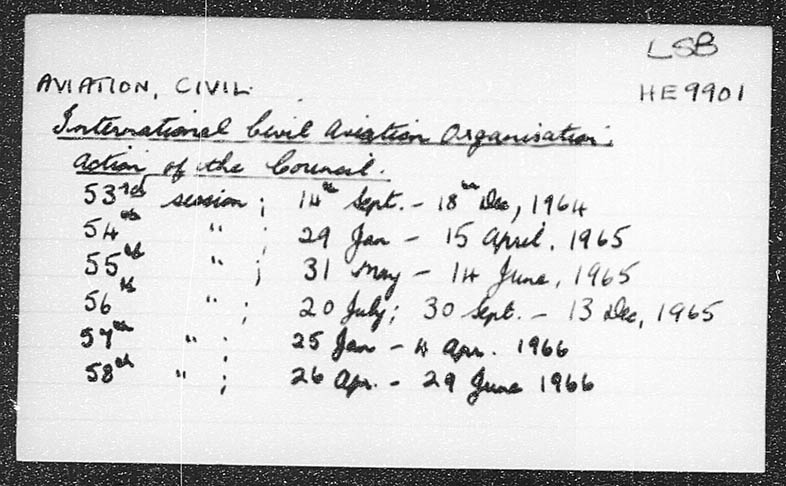 LSB
AVIATION, CIVIL.
HE9901
International Civil Aviation Organisation.
Action of the Council.
53rd session; 14th Sept. - 18th Dec, 1964
54th " ; 29 Jan - 15 April, 1965
55th " ; 31 May - 14 June, 1965
56th " ; 20 July; 30 Sept. - 13 Dec, 1965
57th " ; 25 Jan - 4 Apr. 1966
58th " ; 26 Apr. - 29 June 1966